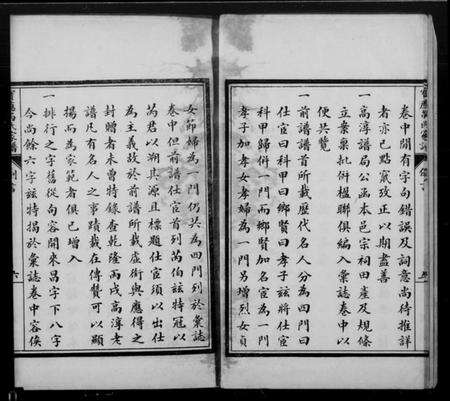 卷中間有字句錯誤及詞意尚待推詳
者亦已點竄改正以期盡善
一高淳譜局公函本邑宗祠田産及規條
立案稟批併楹聯俱編入彙誌卷中以
便共覽
一前譜譜首所載歷代名人分為四門曰
仕宦曰科甲曰鄉賢曰孝子兹將仕宦
科甲歸併一門而鄉賢加名宦為一門
孝子加孝女孝婦為一門另增列女貞
女節婦為一門仍共為四門列於彙誌
卷中但前譜仕宦首列芮伯兹特冠以
芮君以朔其源且標題仕宦須以出仕
為主義故於前譜所載虛銜與應得之
封贈者未曾特錄查乾隆丙戌高淳老
譜凡有名人之事蹟載在傳贊可以顯
揚而為家範者俱已增入
一排行之字舊從向容開來昌字下八字
今尚餘六字兹特揭於彙誌卷中容俟